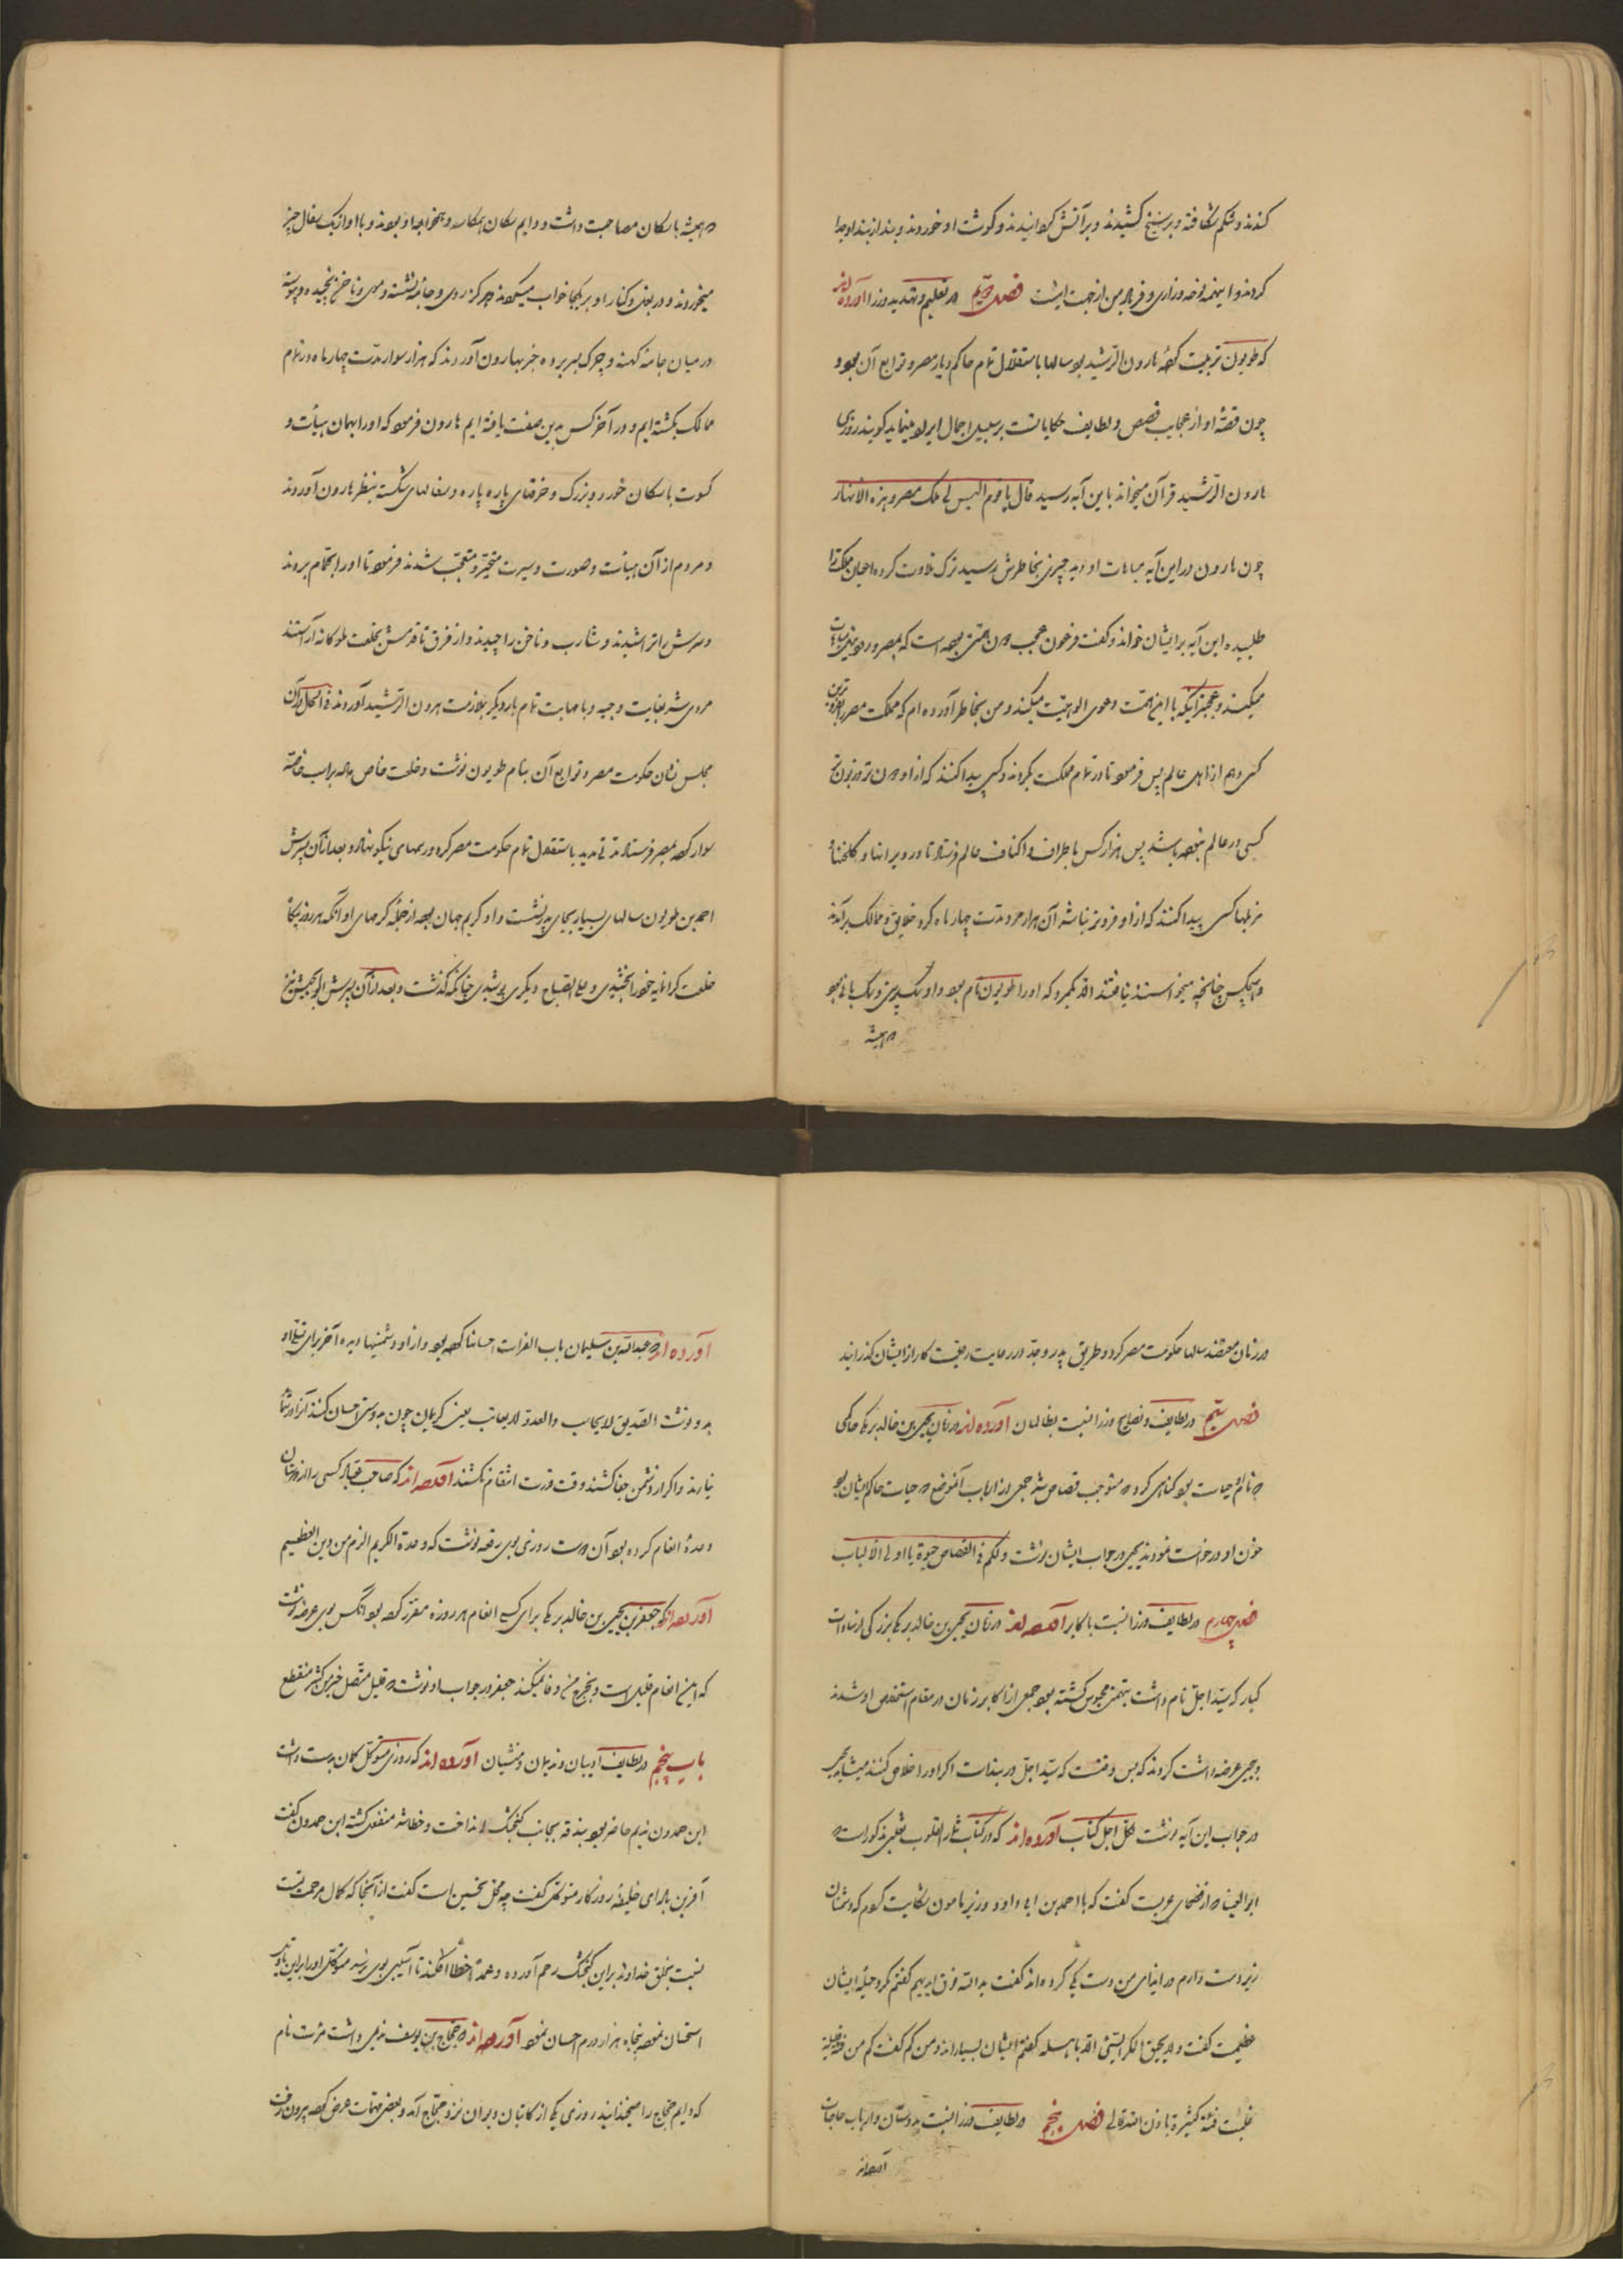 کندند و شکم شکافته و بر سیخ کشیدند و بر آتش گردانیدند و گوشت او خوردند و بند از بند او جدا
کردند و اینهمه نوحه و زاری و فریاد من از جهت اینست فصل دویم در تعلیم و تهدید وزرا آورده اند
که طویون تربیت کرده هارون الرشید بود سالها باستقلال تمام حاکم دیار مصر و توابع آن بود و
چون قصه او از عجایب قصص و لطایف حکایاتست بر سبیل اجمال ایراد مینماید گویند روزی
هارون الرشید قرآن میخواند باین آیه رسید قال یا قوم الیس لی ملک مصر و هذه الانهار
چون هارون در این آیه مباهات او دید چیزی بخاطرش رسید ترک تلاوت کرده اعیان مملکت را
طلبیده این آیه بر ایشان خواند و گفت فرعون عجب دون همتی بوده است که بمصر و رود نیل مباهات
میکند و عجبتر آنکه با این همت دعوی الوهیت میکند و من بخاطر آورده ام که مملکت مصر را بفروترین
کسی دهم از اهل عالم پس فرمود تا در تمام مملکت بگردند و کسی پیدا کنند که از او دون تر و زبون تر
کسی در عالم نبوده باشد پس هزار کس باطراف و اکناف عالم فرستاد تا در ویرانها و گلخنها و
مزبلها کسی پیدا کنند که از او فروتر نباشد آن هزار مرد مدت چهار ماه گرد خلایق و ممالک برآمدند
و هیچکس چنانچه میخواستند نیافتند الا یکمرد که او را طویون نام بود و او سگ پرستی و سگ بانی بود
همیشه
و همیشه با سگان مصاحبت داشت و دایم سگان همکاسه و همخوابه او بودند و با او از یک سفال چیز
میخوردند و در بغل و کنار او بر یکجا خواب میکردند هرگز روی و جامه نشسته و موی و ناخن نچیده و پیوسته
در میان جامه کهنه و چرک بسر برده خبر بهارون آوردند که هزار سوار مدت چهار ماه در تمام
ممالک بگشته ایم و در آخر کس بدین صفت یافته ایم هارون فرمود که او را بهمان هیأت و
کسوت با سگان خورد و بزرگ و خرقهای پاره پاره و سفالهای شکسته بنظر هارون آوردند
و مردم از آن هیأت و صورت و سیرت متحیر و متعجب شدند فرمود تا او را بحمام بردند
و سرش را تراشیدند و شارب و ناخن را چیدند و از فرق تا قدمش بخلعت ملوکانه آراستند
مردی شد بغایت وجیه و با مهابت تمام بار دیگر بملازمت هرون الرشید آوردند فی الحال در آن
مجلس نشان حکومت مصر و توابع آن بنام طویون نوشت و خلعت خاص داده بر اسب خاصه
سوار کرده بمصر فرستاد مدتی مدید باستقلال تمام حکومت مصر کرد و رسمهای نیکو نهاد و بعد از آن پسرش
احمد بن طویون سالهای بسیار بجای پدر نشست و او کریم جهان بود از جمله کرمهای او آنکه هر روز یکتا
خلعت گرانمایه خود را بخشیدی و علی الصباح دیگری پوشیدی چنانکه گذشت و بعد از آن پسرش ابو الجیش نیز
در زمان معتضد سالها حکومت مصر کرد و طریق پدر و جد در رعایت رعیت کار از ایشان گذرانید
فصل سیم در لطایف و نصایح وزرا نسبت بظالمان آورده اند در زمان یحیی بن خالد برمکی حاکمی
در حیات بود گناهی کرد و مستوجب قصاص شد جمعی از ارباب آنموضع که حیات حاکم ایشان بود
خون او درخواست نمودند یحیی در جواب ایشان نوشت ولکم فی القصاص حیوة یا اولی الالباب
فصل چهارم در لطایف وزرا نسبت باکابر آورده اند در زمان یحیی بن خالد برمکی بزرگی از سادات
کبار که سید اجل نام داشت بتهمتی محبوس گشته بود جمعی از اکابر زمان در مقام استخلاص او شدند
و بیحیی عرضه داشت کردند که بس وقتست که سید اجل در بند است اگر او را خلاص کنند میشاید یحیی
در جواب این آیه نوشت لکل اجل کتاب آورده اند که در کتاب ثمار القلوب ثعلبی مذکور است که
ابو العینا که از فصحای عربست گفت که با احمد بن ابی داود وزیر مامون شکایت کردم که دشمنان
زبردست دارم در ایذای من دست یکی کرده اند گفت ید الله فوق ایدیهم گفتم مکر و حیله ایشان
عظیمست گفت و لا یحیق المکر السیئ الا باهله گفتم ایشان بسیارند و من کم گفت کم من فئة قلیلة
غلبت فئة کثیرة باذن الله تعالی فصل پنجم در لطایف وزرا نسبت بدوستان و ارباب حاجات
آورده اند
آورده اند که عبد الله بن سلیمان باب الفرات احسانها کرده بود و از او دشمنیها دیده آخر برای تسلی او
بدو نوشت الصدیق لا یحاسب والعدو لا یعاتب یعنی کریمان چون بدوستی احسان کنند آنرا در شمار
نیارند و اگر از دشمن جفا کشند وقت قدرت انتقام نکشند آورده اند که صاحب عباد کسی را از دوستان
وعده انعام کرده بود آن دوست روزی بوی رقعه نوشت که وعدة الکریم الزم من دین الغریم
آورده اند که جعفر بن یحیی بن خالد برمکی برای کسی انعام هر روزه مقرر کرده بود آنکس بوی عرضه نوشت
که این انعام قلیل است و بخرج من وفا نمیکند جعفر در جواب او نوشت که قلیل متصل خیر من کثیر منقطع
باب پنجم در لطایف ادیبان و ندیمان و منشیان آورده اند که روزی متوکل کمان بدست داشت
ابن حمدون ندیم حاضر بود بندقه بجانب گنجشک انداخت و خطا شد منفعل گشته ابن حمدون گفت
آفرین بادا ای خلیفه روزگار متوکل گفت چه محل تحسین است گفت از آنجا که کمال مرحمت تست
نسبت بخلق خداوند بر این گنجشک رحم آورده و عمدا خطا افکندی تا آسیبی بوی نرسد متوکل او را بر این بدیهه
استحسان نموده پنجاه هزار درم احسان نمود آورده اند که حجاج بن یوسف ندیمی داشت نام
که دایم حجاج را میخندانید روزی یکی از کاتبان دیوان نزد حجاج آمد و بعضی مهمات عرض کرده بیرون رفت